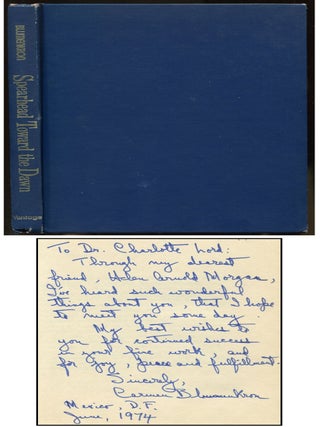 BLUMENKRON
Spearhead Toward the Dawn
Vantage
To Dr. Charlotte Lord:
Through my dearest
friend, Helen Arnold Morgan,
I've heard such wonderful
things about you, that I hope
to meet you some day
My best wishes to
you for continued success
in your fine work, and
for joy, peace and fulfillment.
Sincerely,
Carmen Blumenkron
Mexico, D.F.
June, 1974